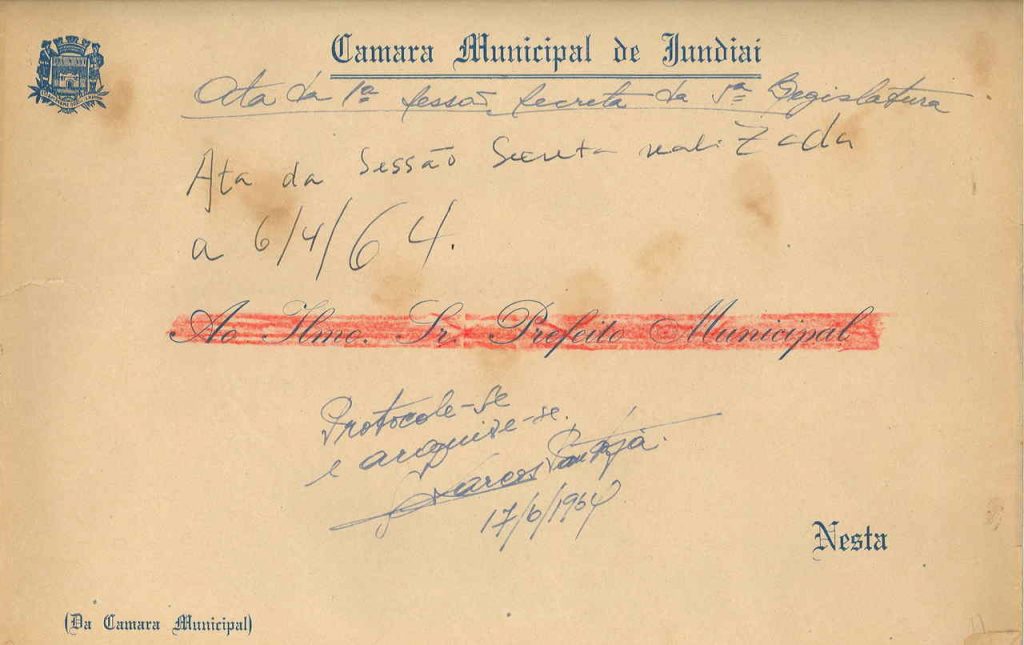 Camara Municipal de Jundiai
Ata da 1ª sessão secreta da 5ª Legislatura
Ata da Sessão Secreta realizada
a 6/4/64.
Ao Ilmo. Sr. Prefeito Municipal
Protocole-se
e arquive-se.
17/6/1964
Nesta
(Da Camara Municipal)